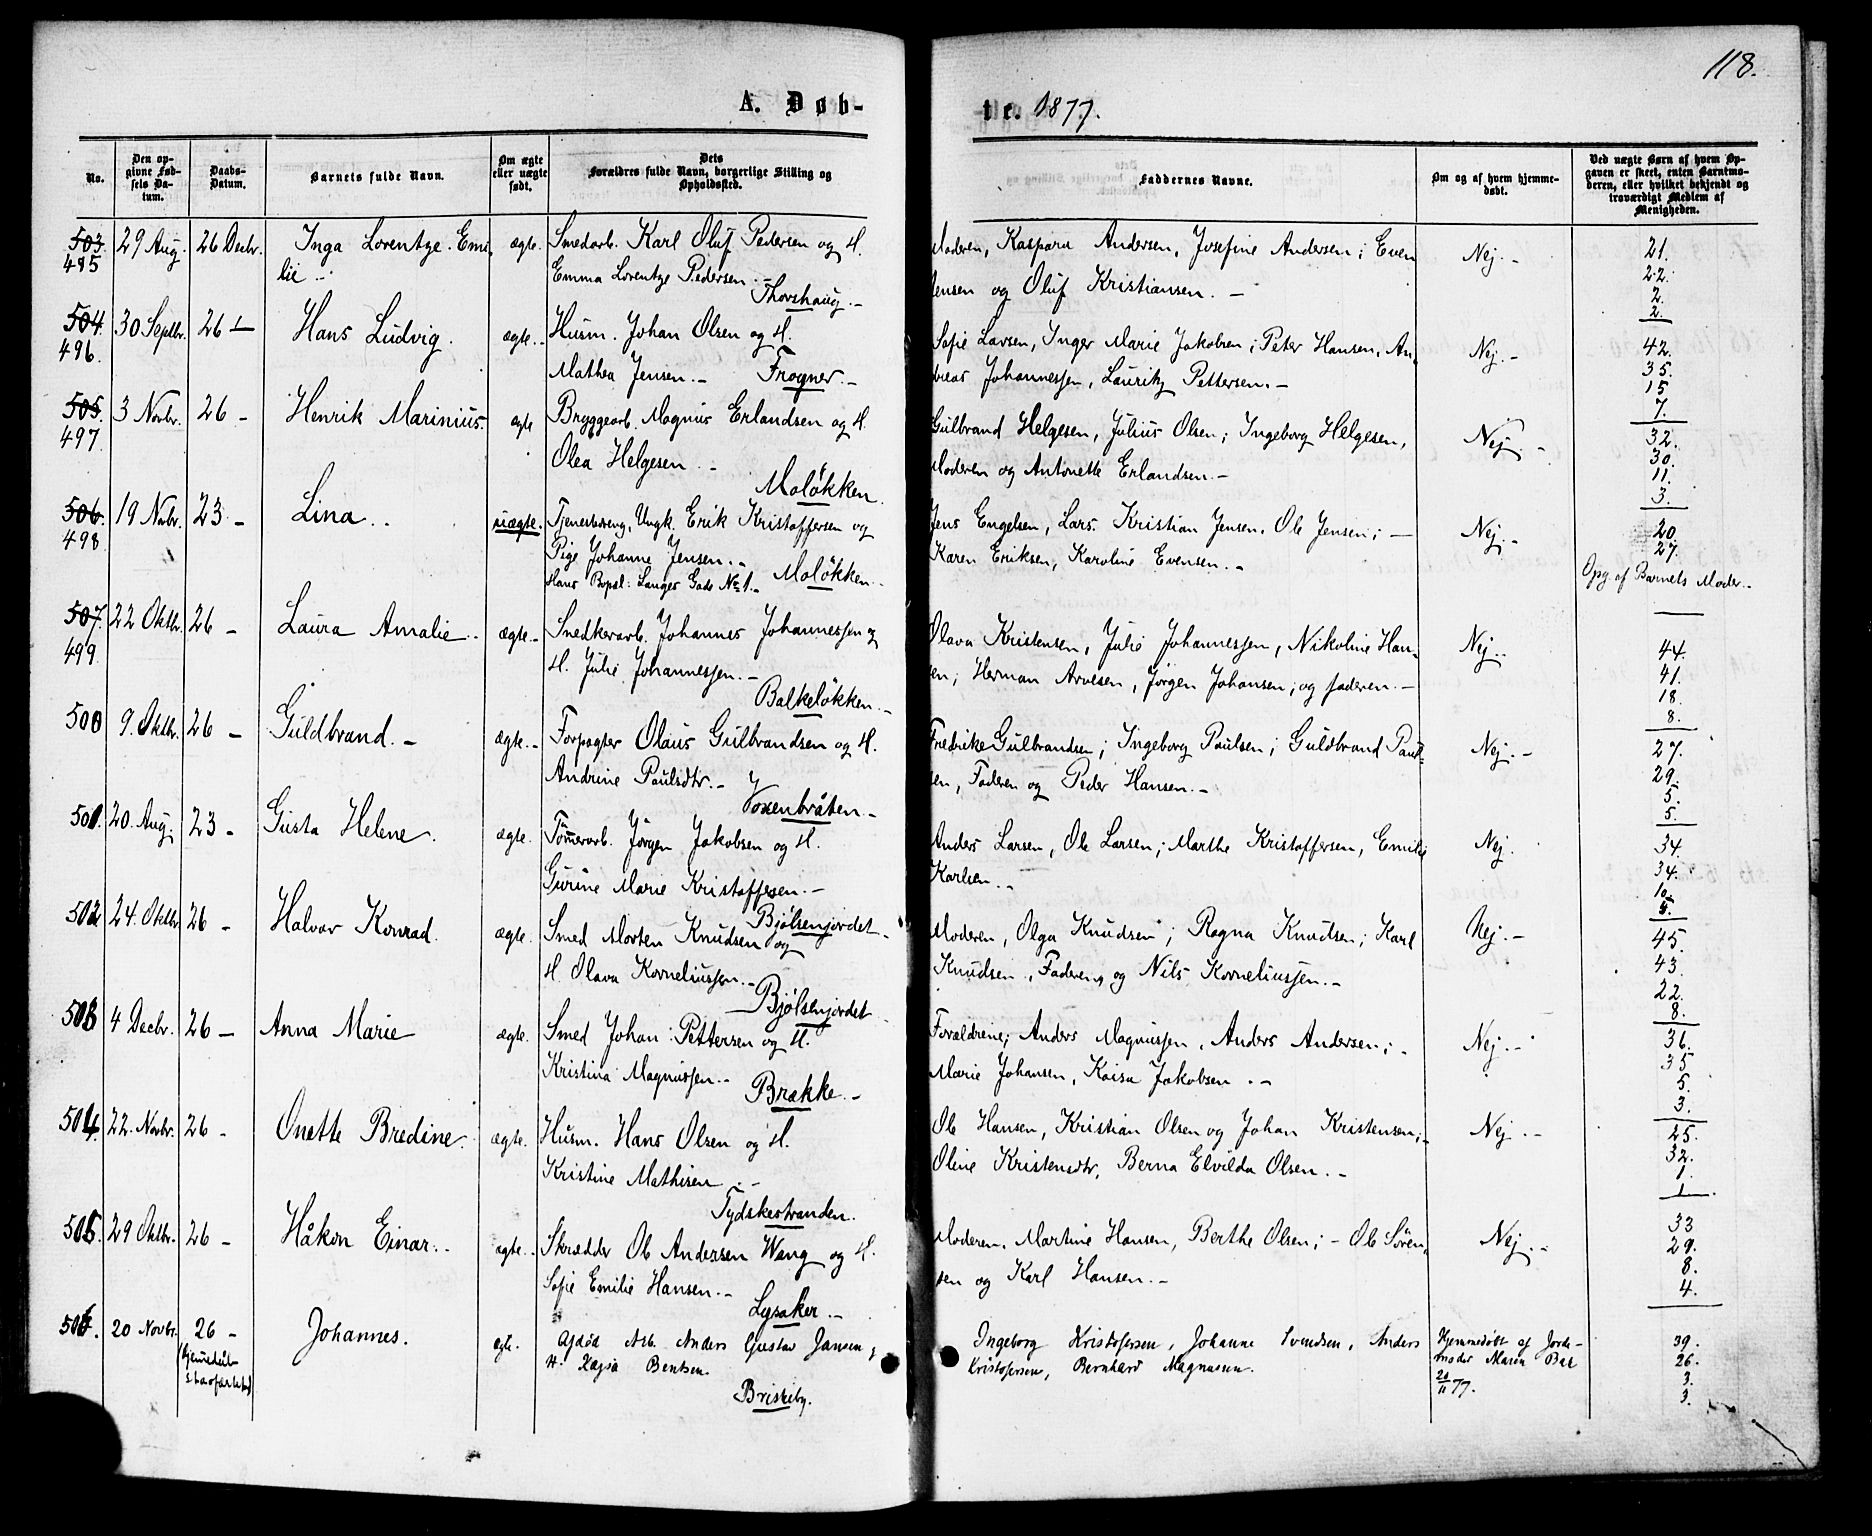 118.
A. Døb-
te. 1877.
No.
Den op-
givne Fød-
sels Da-
tum.
Daabs-
Datum.
Barnets fulde Navn.
Om ægte
eller uægte
født.
Dets
Forældres fulde Navn, borgerlige Stilling og
Opholdssted.
Faddernes Navne.
Om og af hvem hjemme-
døbt.
Ved uægte Børn af hvem Op-
gaven er skeet, enten Barnemo-
deren, eller hvilket bekjendt og
troværdigt Medlem af
Menigheden.
503 29 Aug. 26 Decbr. Inga Lorentze Emi- ægte. Smedarb. Karl Oluf Pedersen og H. Moderen, Kaspara Andersen, Josefine Andersen; Even Nej.- 21.
485 lie Emma Lorentze Pedersen. Jensen og Oluf Kristiansen. - 22.
Thorshaug.- 2.
2.
504. 30 Septbr. 26 - Hans Ludvig. ægte. Husm. Johan Olsen og H. Sofie Larsen, Inger Marie Jakobsen; Peter Hansen, An- Nej.- 42.
496. Mathea Jensen.- Frogner.- dreas Johannessen, Lauritz Pettersen.- 35.
15
7.
505. 3 Novbr. 26 - Henrik Marinius. ægte Bryggearb. Magnus Erlandsen og H. Gulbrand Helgesen, Julius Olsen; Ingeborg Helgesen, Nej.- 32.
497. Olea Helgesen.- Moderen og Antonette Erlandsen.- 30.
Moløkken. 11.
3.
506. 19 Novbr. 23 - Lina.. uægte. Tjenestedreng, Ungk. Erik Kristoffersen og Jens Engelsen, Lars Kristian Jensen, Ole Jensen; - Nej.- 20
498 Pige Johanne Jensen.- Karen Eriksen, Karoline Evensen.- 27.
Hans Bopæl: Langes Gade No 1.- Moløkken.- Opg. af Barnets Moder.-
507. 22 Oktbr. 26 - Laura Amalie. ægte.- Snedkerarb. Johannes Johannessen og Olava Kristensen, Julie Johannessen, Nikoline Han- Nej.. 44.
499 H. Julie Johannessen.- sen; Herman Arvesen, Jørgen Johansen; og faderen.- 41.
Balkeløkken.- 18.
8.
500 9. Oktbr. 26 - Guldbrand.- ægte.- Forpagter Olaus Gulbrandsen og H. Fredrike Gulbrandsen; Ingeborg Paulsen; Guldbrand Paul- Nej.- 27.
Andrine Paulsdtr.- sen, Faderen og Peder Hansen.- 29.
Voxenbråten.- 5.
5.
501. 20 Aug. 23 - Gusta Helene. ægte. Tømmerarb. Jørgen Jakobsen og H. Anders Larsen, Ole Larsen; Marthe Kristoffersen, Emilie Nej. 34.
Gurine Marie Kristoffesen.- Karlsen.- 34.
Bjølsenjordet.- 10
5.
502 24. Oktbr. 26 - Halvor Konrad. ægte. Smed Morten Knudsen og Moderen, Olga Knudsen; Ragna Knudsen; Karl Nej.- 45.
H. Olava Korneliussen.- Knudsen, Faderen og Nils Korneliussen.- 43.
Bjølsenjordet 22.
8.
503 4 Decbr. 26 - Anna Marie ægte. Smed Johan Pettersen og H. Forældrene; Anders Magnussen, Anders Andersen; - Nej.- 36.
Kristina Magnussen.- Marie Johansen, Kaisa Jakobsen.- 35
Brække.- 5.
3.
504. 22. Novbr. 26 - Onette Bredine. ægte. Husm. Hans Olsen og H. Ole Hansen, Kristian Olsen og Johan Kristensen; Nej.- 25.
Kristine Mathisen.- Oline Kristensdtr, Berna Elvilda Olsen.- 32.
Tydskestranden. 1.
1.
505. 29 Oktbr. 26 - Håkon Einar.. ægte. Skrædder Ole Andersen Wang og H. Moderen, Martine Hansen, Berthe Olsen; - Ole Søren- Nej.- 33
Sofie Emilie Hansen.- sen og Karl Hansen.- 29.
Lysaker.- 8.
4.
506. 20 Novbr. 26 - Johannes. ægte. Afdød Arb. Anders Gustav Jansen og Ingeborg Kristofersen, Johanne Svendsen, Anders Hjemmedøbt af Jorde- 39.
(hjemmedøbt H. Kajsa Bentsen. Kristofersen, Bernhard Magnusen. moder Maren Bie 26.
stadfæstet) Briskeby. 20/11 77. 3.
3.